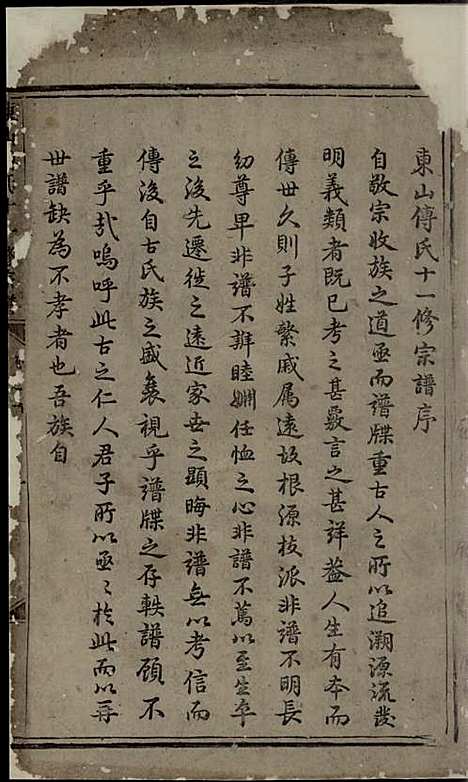 東山傅氏十一修宗譜序
自敬宗收族之道亟而譜牒重古人之所以追溯源流發
明義類者既已考之甚覈言之甚詳葢人生有本而
傳世久則子姓繁戚属遠故根源枝派非譜不明長
幼尊卑非譜不辨睦婣任恤之心非譜不篤以至生卒
之後先遷徙之遠近家世之顯晦非譜無以考信而
傳後自古氏族之盛衰視乎譜牒之存軼譜顧不
重乎哉嗚呼此古之仁人君子所以亟〻於此而以再
世譜缺為不孝者也吾族自